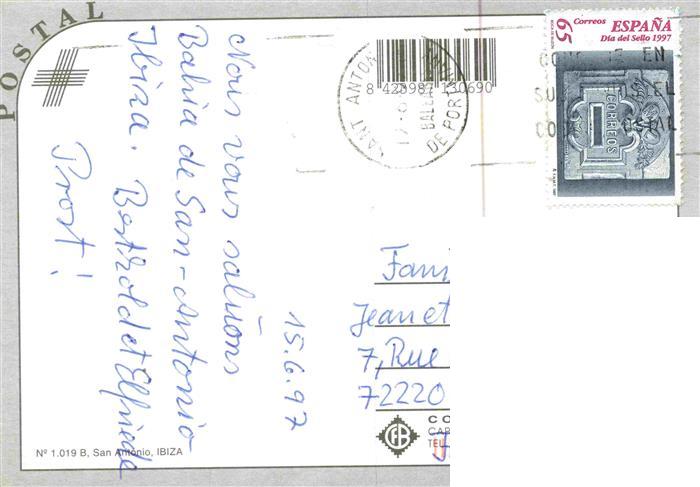 POSTAL
Nous vous saluons
Bahia de San-Antonio
Ibiza. Berthold et Elfriede
Prost!
15.6.97
8 423987 130690
SANT ANTON
BALEA
DE POR
65
Correos ESPAÑA
Día del Sello 1997
CORREOS
EN
EL
Fam
Jean et
7, Rue
72220
CO
CAR
TEL
Nº 1.019 B, San Antonio, IBIZA